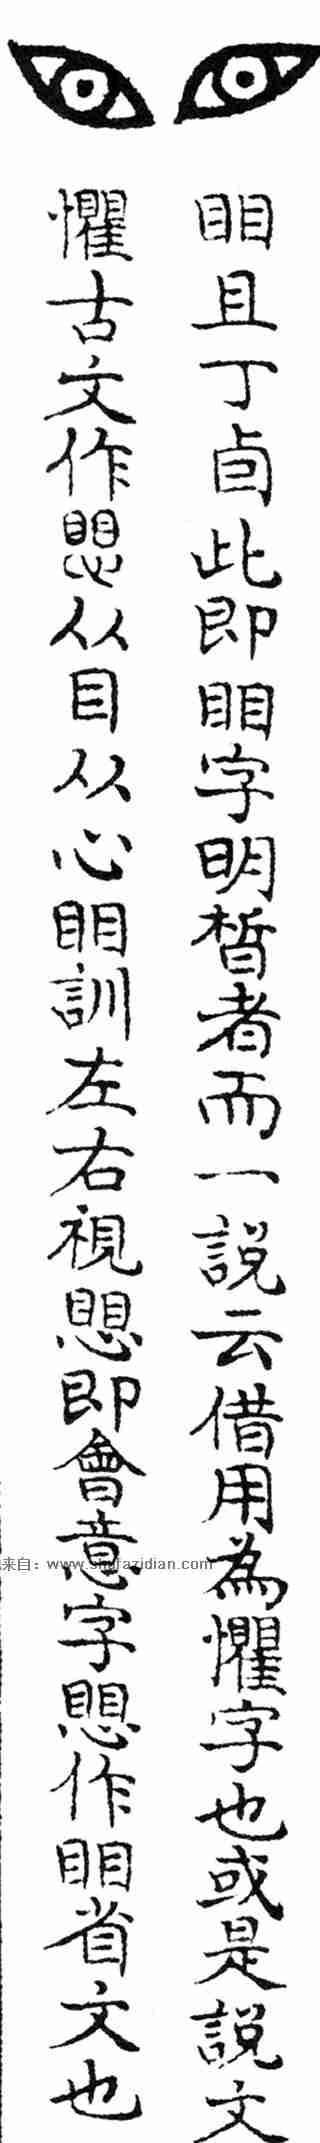 䀠且丁卣此即䀠字明晳者而一說云借用為懼字也或是說文
懼古文作愳从目从心䀠訓左右視愳即會意字愳作䀠省文也
来自：www.shufazidian.com